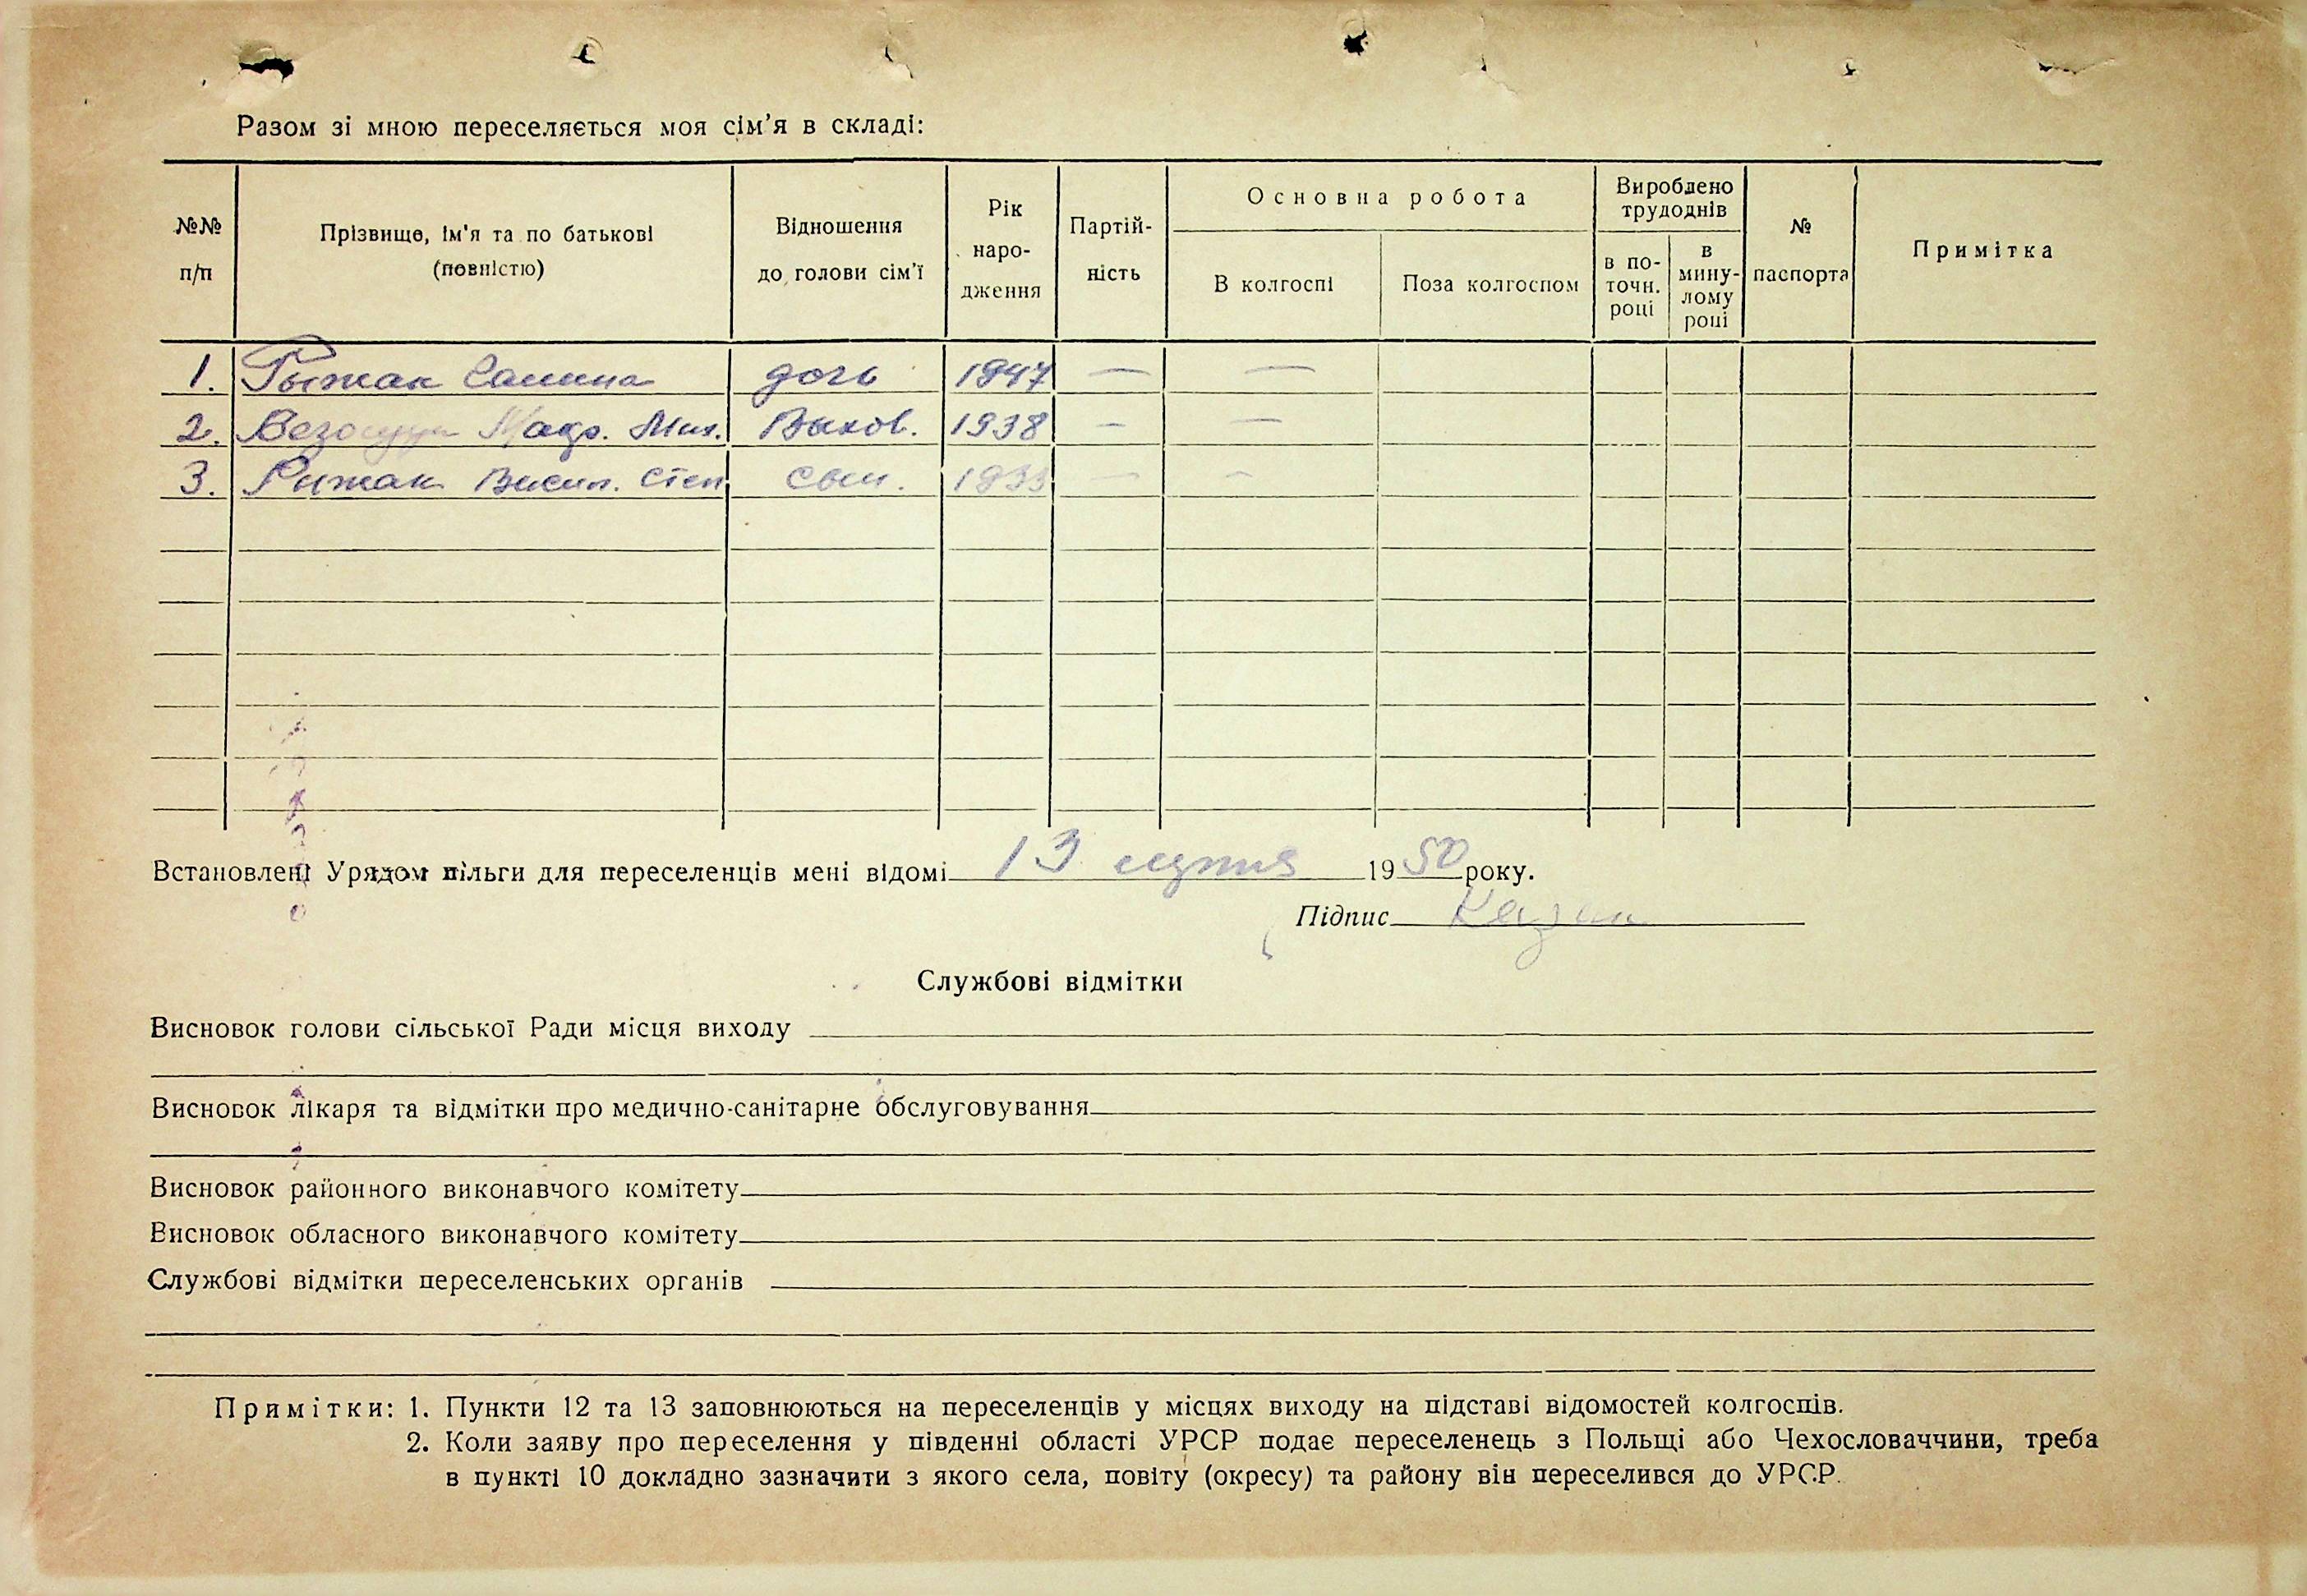 Разом зі мною переселяється моя сім'я в складі:
№№ п/п
Прізвище, ім'я та по батькові (повністю)
Відношення до голови сім'ї
Рік народження
Партійність
Основна робота
В колгоспі
Поза колгоспом
Вироблено трудоднів
в поточн. році
в минулому році
№ паспорта
Примітка
1. Рыжак дочь 1947 — —
2. Мих. 1938 — —
3. Рыжак Васил. Степ сын. 1933 — —
Встановлені Урядом пільги для переселенців мені відомі 13 серпня 1950 року.
Підпис
Службові відмітки
Висновок голови сільської Ради місця виходу
Висновок лікаря та відмітки про медично-санітарне обслуговування
Висновок районного виконавчого комітету
Висновок обласного виконавчого комітету
Службові відмітки переселенських органів
Примітки: 1. Пункти 12 та 13 заповнюються на переселенців у місцях виходу на підставі відомостей колгоспів.
2. Коли заяву про переселення у південні області УРСР подає переселенець з Польщі або Чехословаччини, треба
в пункті 10 докладно зазначити з якого села, повіту (окресу) та району він переселився до УРСР.